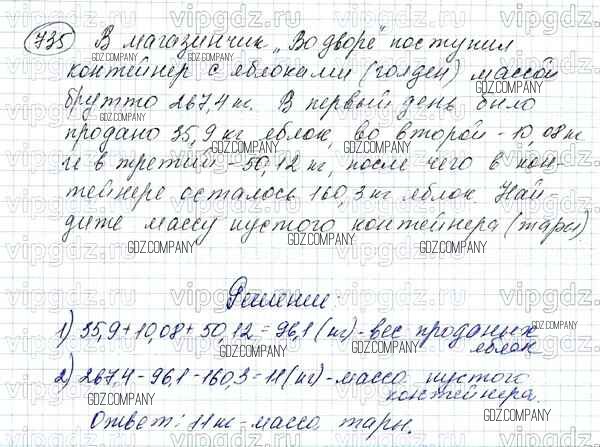 735 В магазинчик „Во дворе" поступил
контейнер с яблоками (голден) массой
брутто 267,4 кг. В первый день было
продано 35,9 кг яблок, во второй - 10,08 кг
и в третий - 50,12 кг, после чего в кон-
тейнере осталось 160,3 кг яблок. Най-
дите массу пустого контейнера (тары)
Решение:
1) 35,9 + 10,08 + 50,12 = 96,1 (кг) - вес проданых
яблок
2) 267,4 - 96,1 - 160,3 = 11 (кг) - масса пустого
контейнера.
Ответ: 11 кг - масса тары.